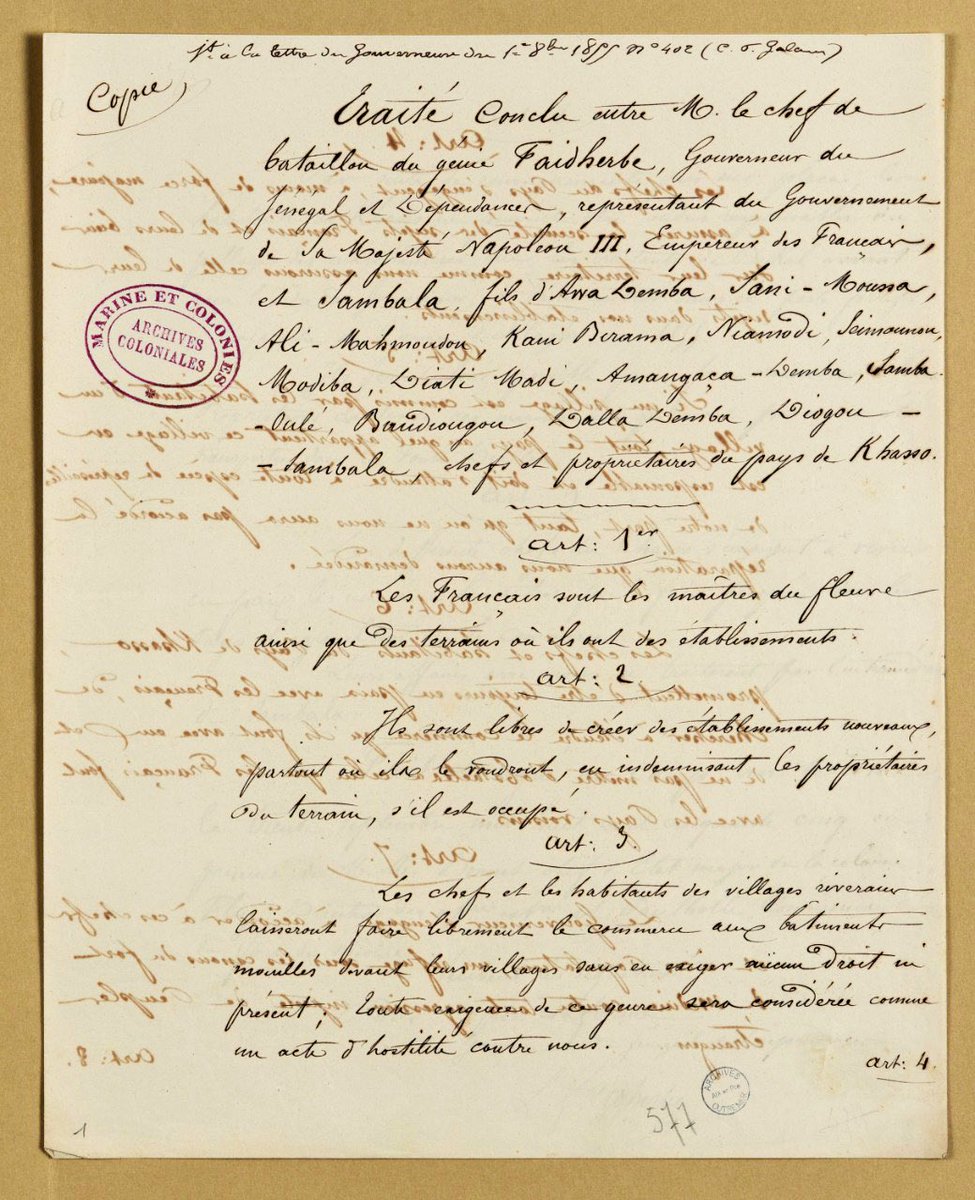 jt. à la lettre du Gouverneur du 1er 8bre 1855 N° 402 (C. S. Galam)
Copie
Traité Conclu entre M. le chef de
bataillon du génie Faidherbe, Gouverneur du
Sénégal et Dépendances, représentant du Gouvernement
de Sa Majesté Napoléon III, Empereur des Français,
et Sambala, fils d'Awa Demba, Sani-Moussa,
Ali-Mahmoudou, Kani Birama, Niamodi, Seimounou,
Modiba, Diati Madi, Amangaça-Demba, Samba-
-Oulé, Bandiougou, Dalla Demba, Diogou-
-Sambala, chefs et propriétaires du pays de Khasso.
MARINE ET COLONIES
ARCHIVES
COLONIALES
art: 1er.
Les Français sont les maîtres du fleuve
ainsi que des terrains où ils ont des établissements.
art: 2.
Ils sont libres de créer des établissements nouveaux,
partout où ils le voudront, en indemnisant les propriétaires
du terrain, s'il est occupé.
art: 3.
Les chefs et les habitants des villages riverains
laisseront faire librement le commerce aux bâtiments
mouillés devant leurs villages sans en exiger aucun droit ni
présent; Toute exigence de ce genre sera considérée comme
un acte d'hostilité contre nous.
art: 4.
ARCHIVES
OUTREMER
577
1